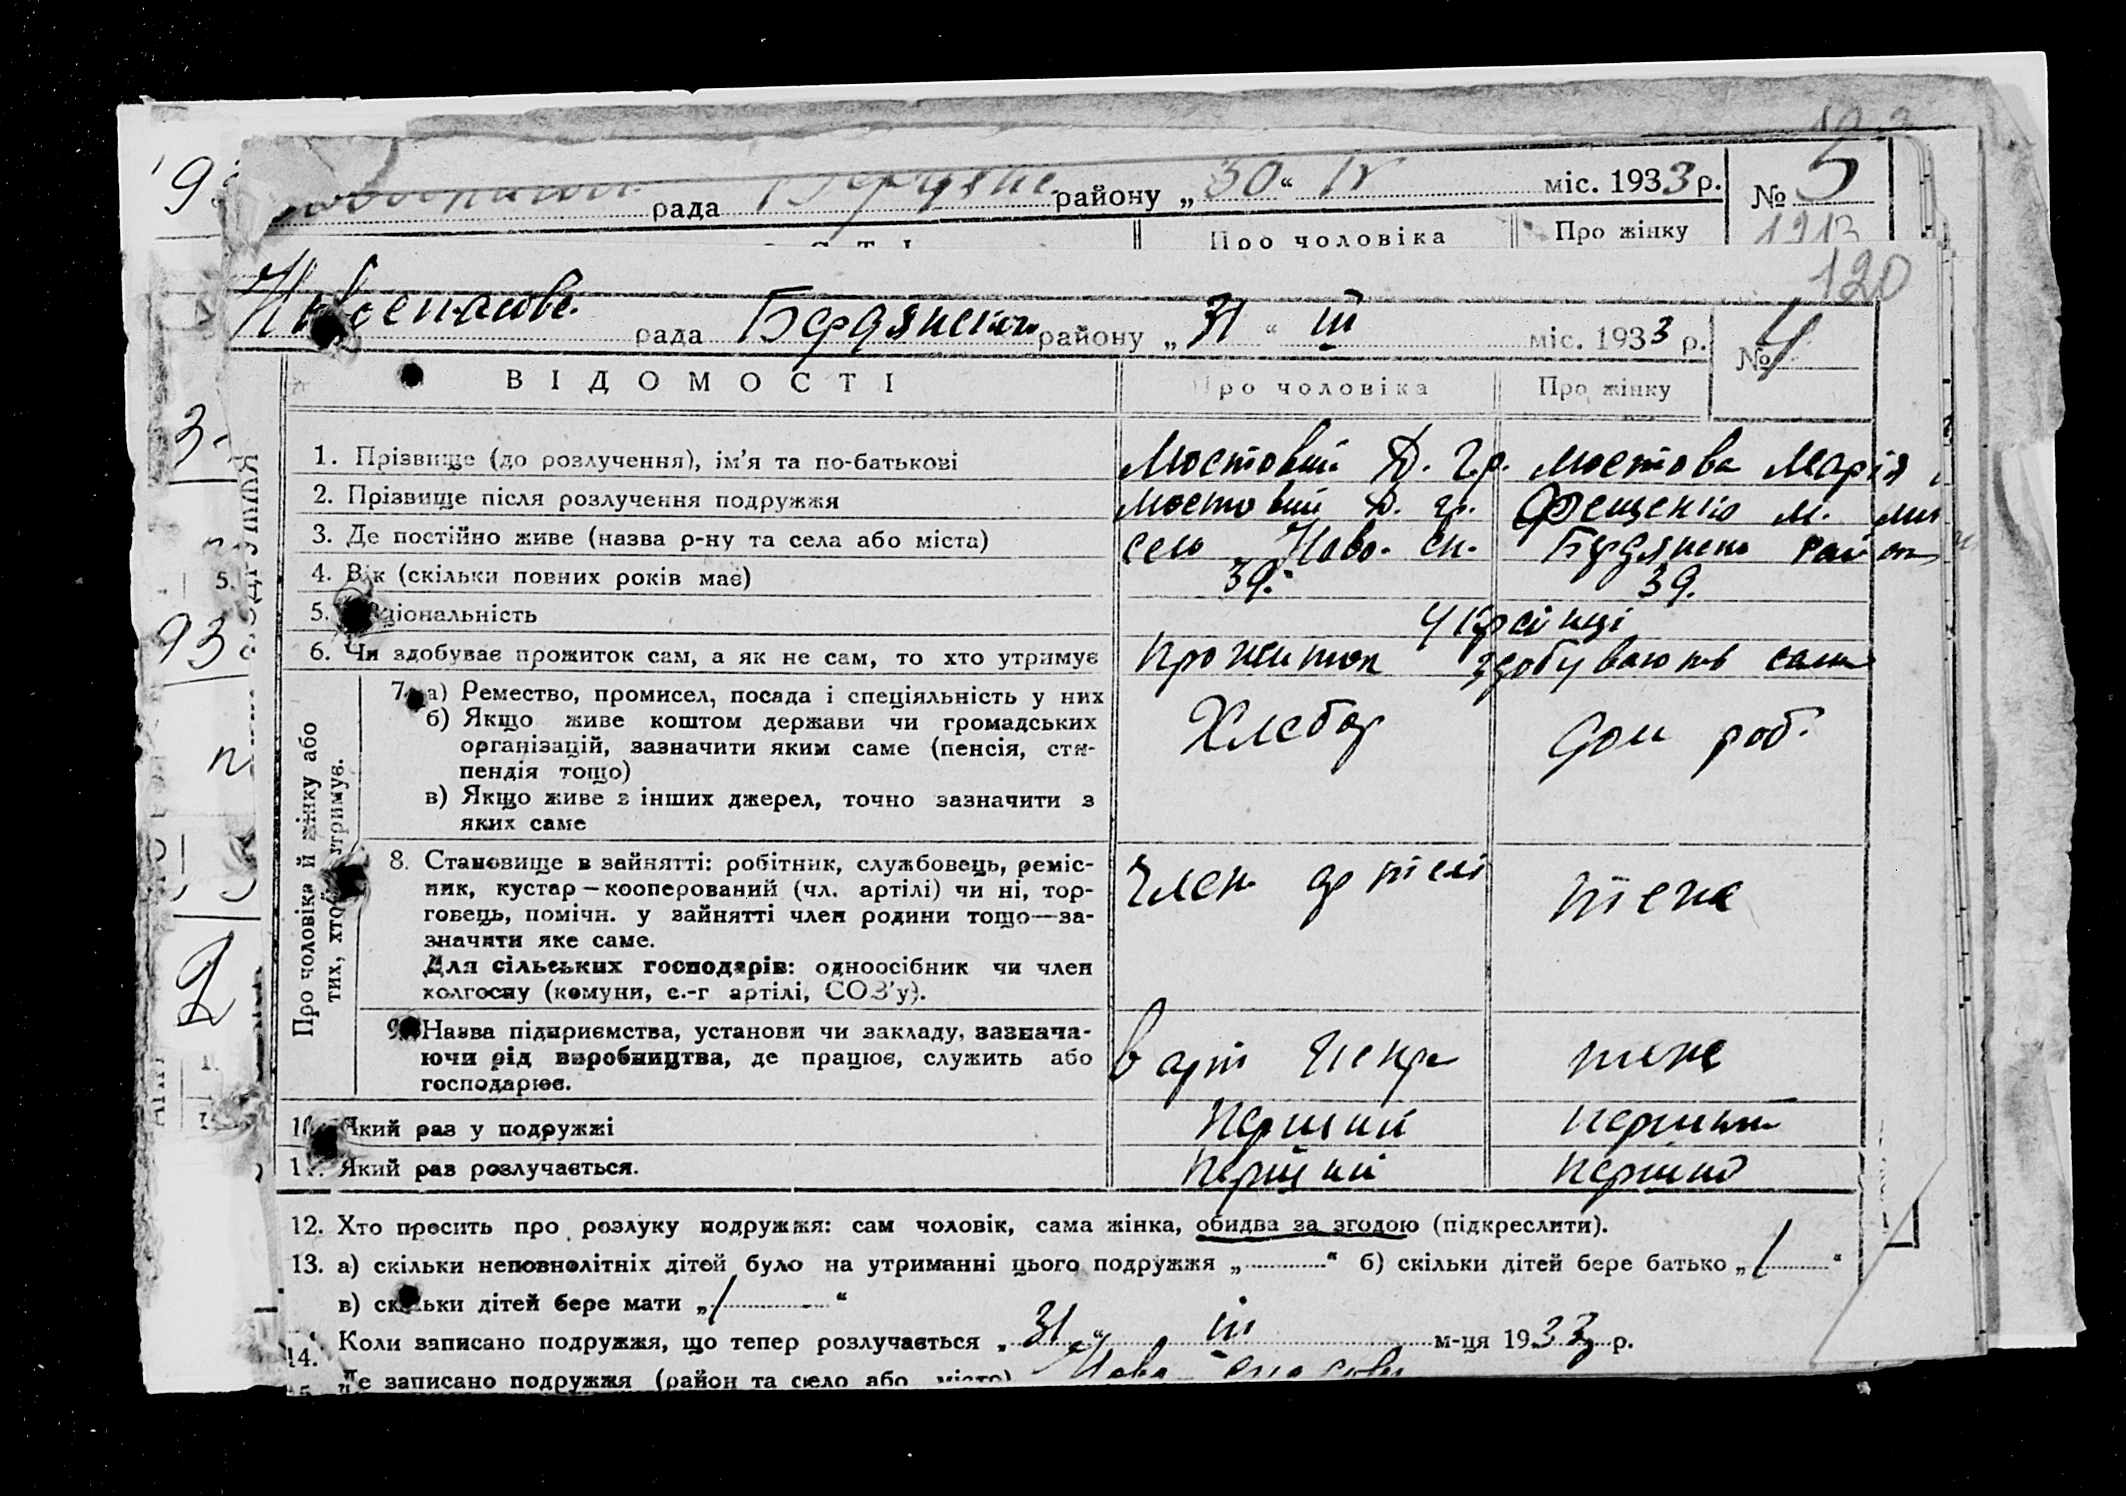 рада району „30“ IV міс. 1933 р. № 5
Про чоловіка Про жінку
120
рада Бердянськ району „31“ III міс. 1933 р. № 4
ВІДОМОСТІ Про чоловіка Про жінку
1. Прізвище (до розлучення), ім’я та по-батькові Мостовий Д. Гр. Мостова Марія
2. Прізвище після розлучення подружжя Мостовий Д. Гр. Фещенко М.
3. Де постійно живе (назва р-ну та села або міста) село Ново-сп. Бердянсько район
4. Вік (скільки повних років має) 39. 39.
5. ціональність Українці
6. Чи здобуває прожиток сам, а як не сам, то хто утримує прожиток здобувають сами
Про чоловіка й жінку або
тих, хто утримує.
7. а) Ремество, промисел, посада і спеціяльність у них Хлебор Дом роб.
б) Якщо живе коштом держави чи громадських
організацій, зазначити яким саме (пенсія, сти-
пендія тощо)
в) Якщо живе з інших джерел, точно зазначити з
яких саме
8. Становище в зайнятті: робітник, службовець, реміс- Член артілі теж
ник, кустар—кооперований (чл. артілі) чи ні, тор-
говець, помічн. у зайнятті член родини тощо—за-
значити яке саме.
Для сільських господарів: одноосібник чи член
колгоспу (комуни, с.-г артілі, СОЗ’у).
9. Назва підприємства, установи чи закладу, зазнача- в арт Искра теж
ючи рід виробництва, де працює, служить або
господарює.
10. Який раз у подружжі перший перший
11. Який раз розлучається. перший перший
12. Хто просить про розлуку подружжя: сам чоловік, сама жінка, обидва за згодою (підкреслити).
13. а) скільки неповнолітніх дітей було на утриманні цього подружжя „ “ б) скільки дітей бере батько „/ “
в) скільки дітей бере мати „/ “
14. Коли записано подружжя, що тепер розлучається „31“ III м-ця 1933 р.
Де записано подружжя (район та село або місто) Ново-спасовк